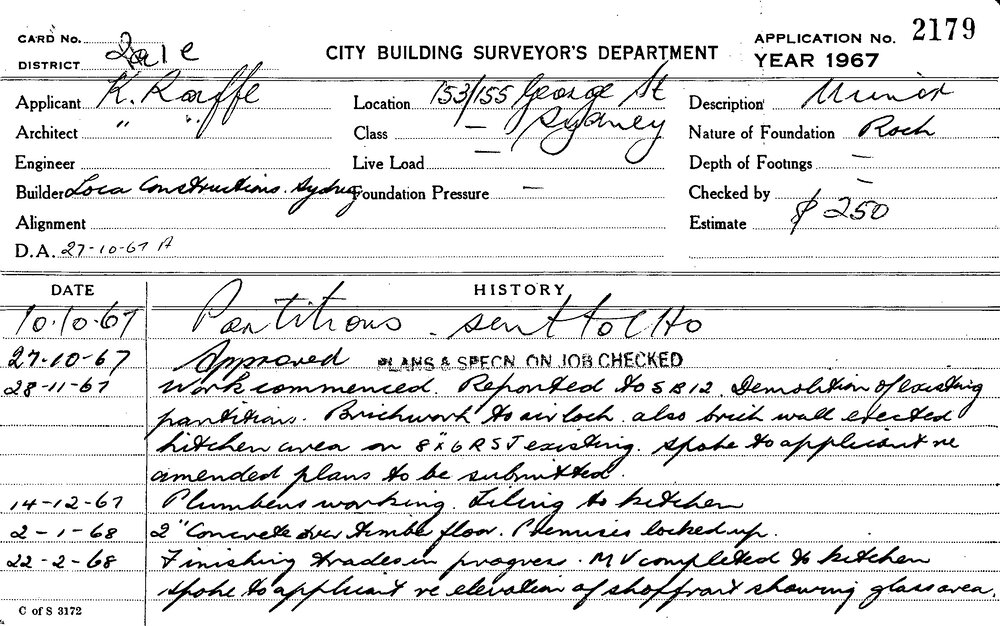 CARD No.
DISTRICT
CITY BUILDING SURVEYOR'S DEPARTMENT
APPLICATION No. 2179
YEAR 1967
Applicant K. Rarffe
Location 153/155 George St Sydney
Description Minor
Architect " "
Class —
Nature of Foundation Rock
Engineer
Live Load —
Depth of Footings —
Builder Loca Constructions. Sydney
Foundation Pressure —
Checked by —
Alignment
Estimate $ 250
D.A. 27-10-67 A
DATE HISTORY
10.10.67 Partitions - sent to CHO
27-10-67 Approved PLANS & SPECN. ON JOB CHECKED
28-11-67 Work commenced. Reported to SB12. Demolition of existing
partitions. Brickwork to airlock. also brick wall erected
kitchen area on 8"x6 RSJ existing. Spoke to applicant re
amended plans to be submitted.
14-12-67 Plumbers working. Tiling to kitchen
2-1-68 2" Concrete over timber floor. Premises locked up.
22-2-68 Finishing trades in progres. MV completed to kitchen
spoke to applicant re elevation of shopfront showing glass area.
C of S 3172